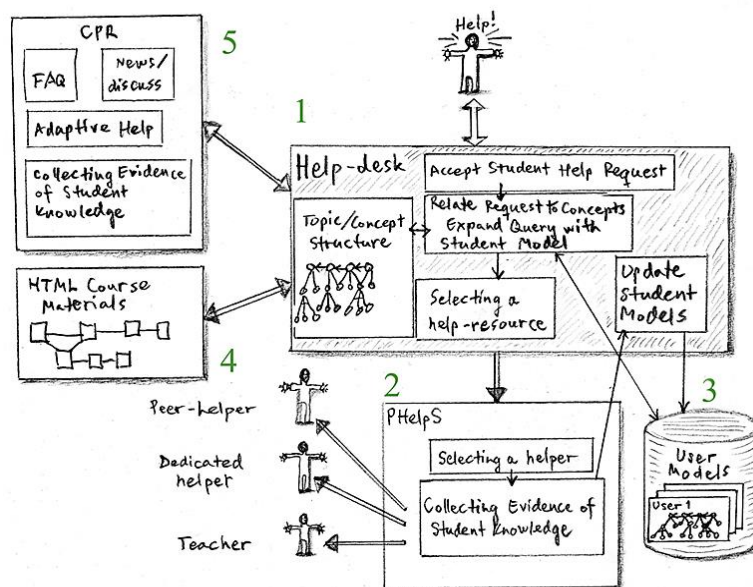 Help!
CPR
5
FAQ
News/
discuss
Adaptive Help
Collecting Evidence
of Student
Knowledge
1
Help-desk
Accept Student Help Request
Relate Request to Concepts
Expand Query with
Student Model
Topic/Concept
Structure
Selecting a
help-resource
Update
Student
Models
HTML Course
Materials
4
2
PHelpS
Selecting a helper
Collecting Evidence of
Student Knowledge
Peer-helper
Dedicated
helper
Teacher
3
User
Models
User 1